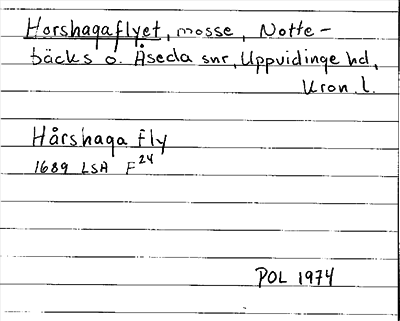 Horshagaflyet, mosse, Notte-
bäcks o. Åseda snr, Uppvidinge hd,
Kron. l.
Hårshaga fly
1689 LSA F24
POL 1974